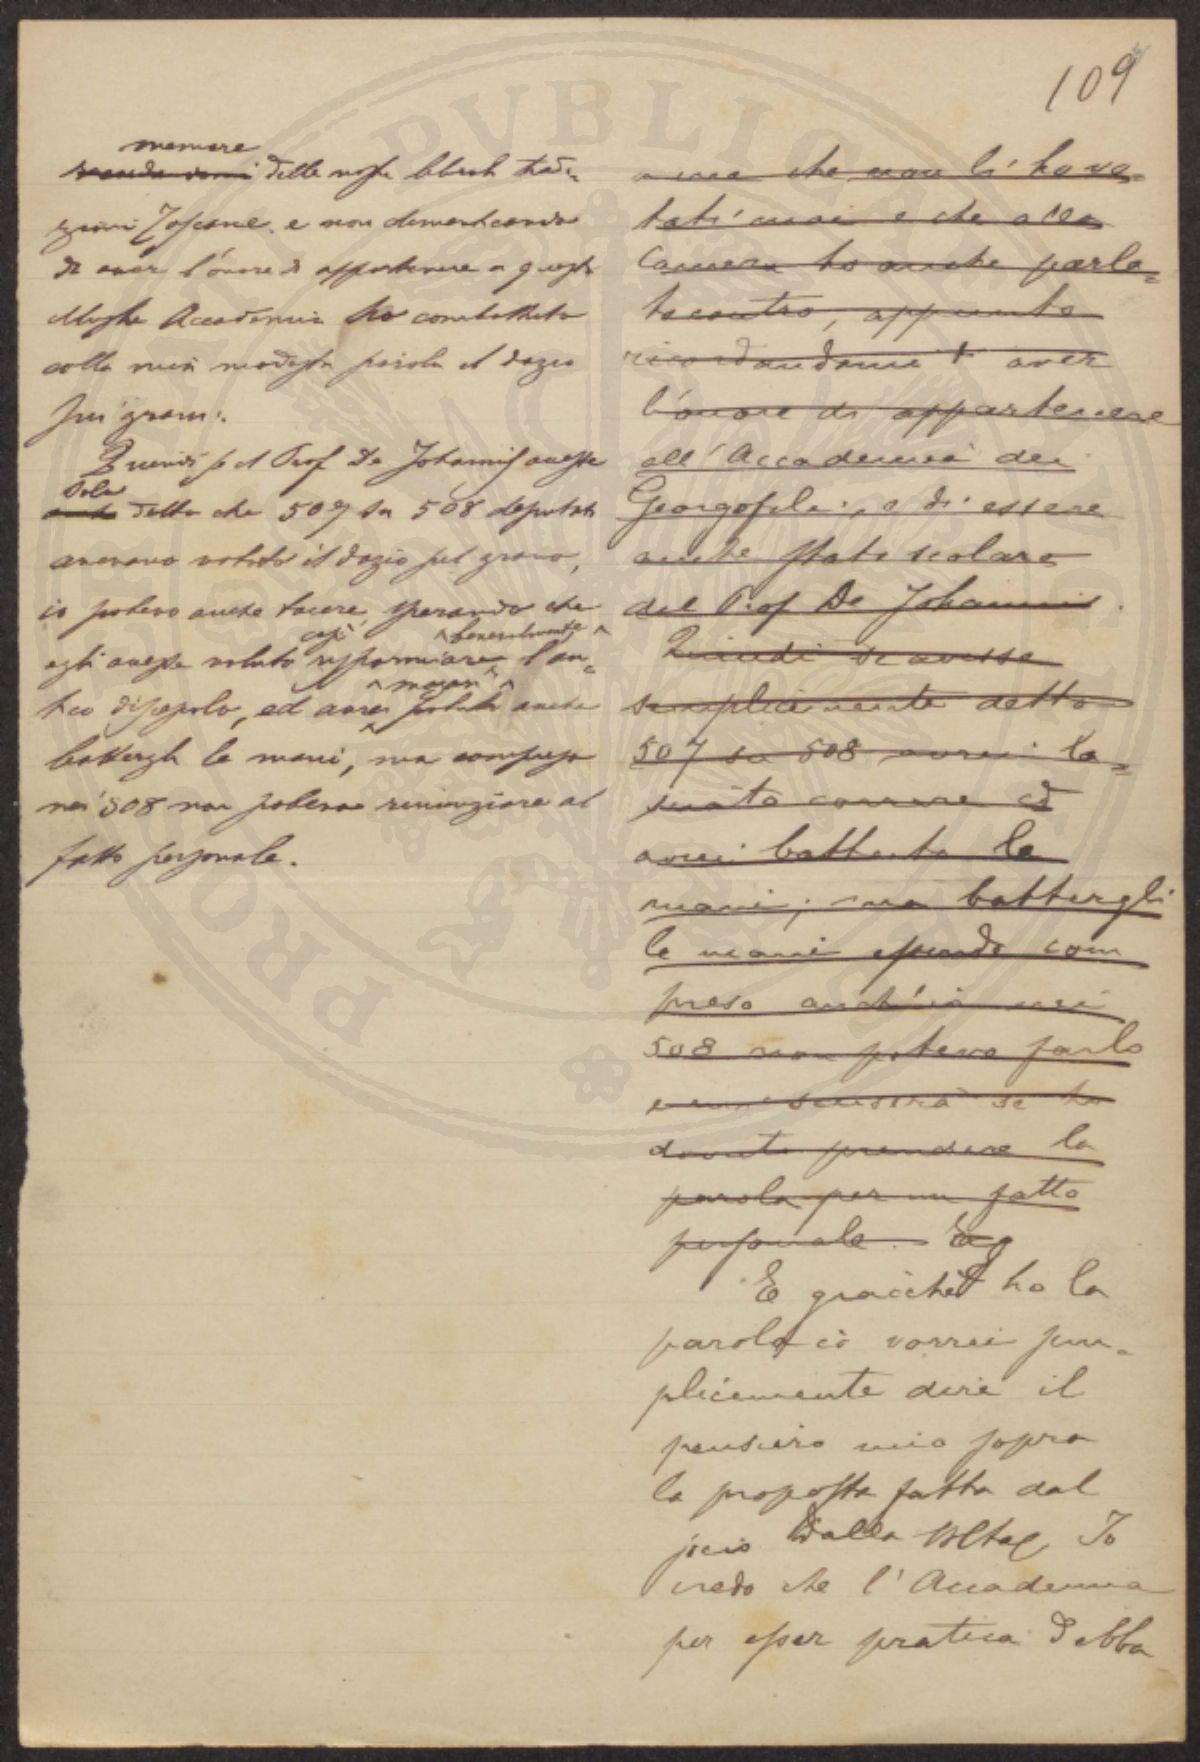 109
memore
delle nostre liberali tradi=
zioni Toscane, e non dimenticando
di aver l'onore di appartenere a questa
illustre Accademia ho combattuto
colla mia modesta parola il dazio
sui grani.
Quindi se il Prof De Johannis avesse
solo
detto che 507 su 508 deputati
avevano votato il dazio sul grano,
io potevo anche tacere, sperando che
così benevolmente
egli avesse voluto risparmiare l'an=
tico discepolo, ed avrei potuto anche
battergli le mani, ma compreso
nei 508 non potevo rinunziare al
fatto personale.
che non li ho vo=
tati mai e che alla
Camera ho anche parla=
to contro, appunto
ricordandomi d'aver
l'onore di appartenere
all'Accademia dei
Georgofili, e di essere
anche stato scolaro
del Prof De Johannis.
Quindi se avesse
semplicemente detto
507 su 508 avrei la=
sciato correre ed
avrei battuto le
mani; ma battergli
le mani essendo com
preso anch'io nei
508 non potevo farlo
e mi scuserà se ho
dovuto prendere la
parola per un fatto
personale.
E giacchè ho la
parola io vorrei sem=
plicemente dire il
pensiero mio sopra
la proposta fatta dal
socio Dalla Volta. Io
credo che l'Accademia
per esser pratica debba